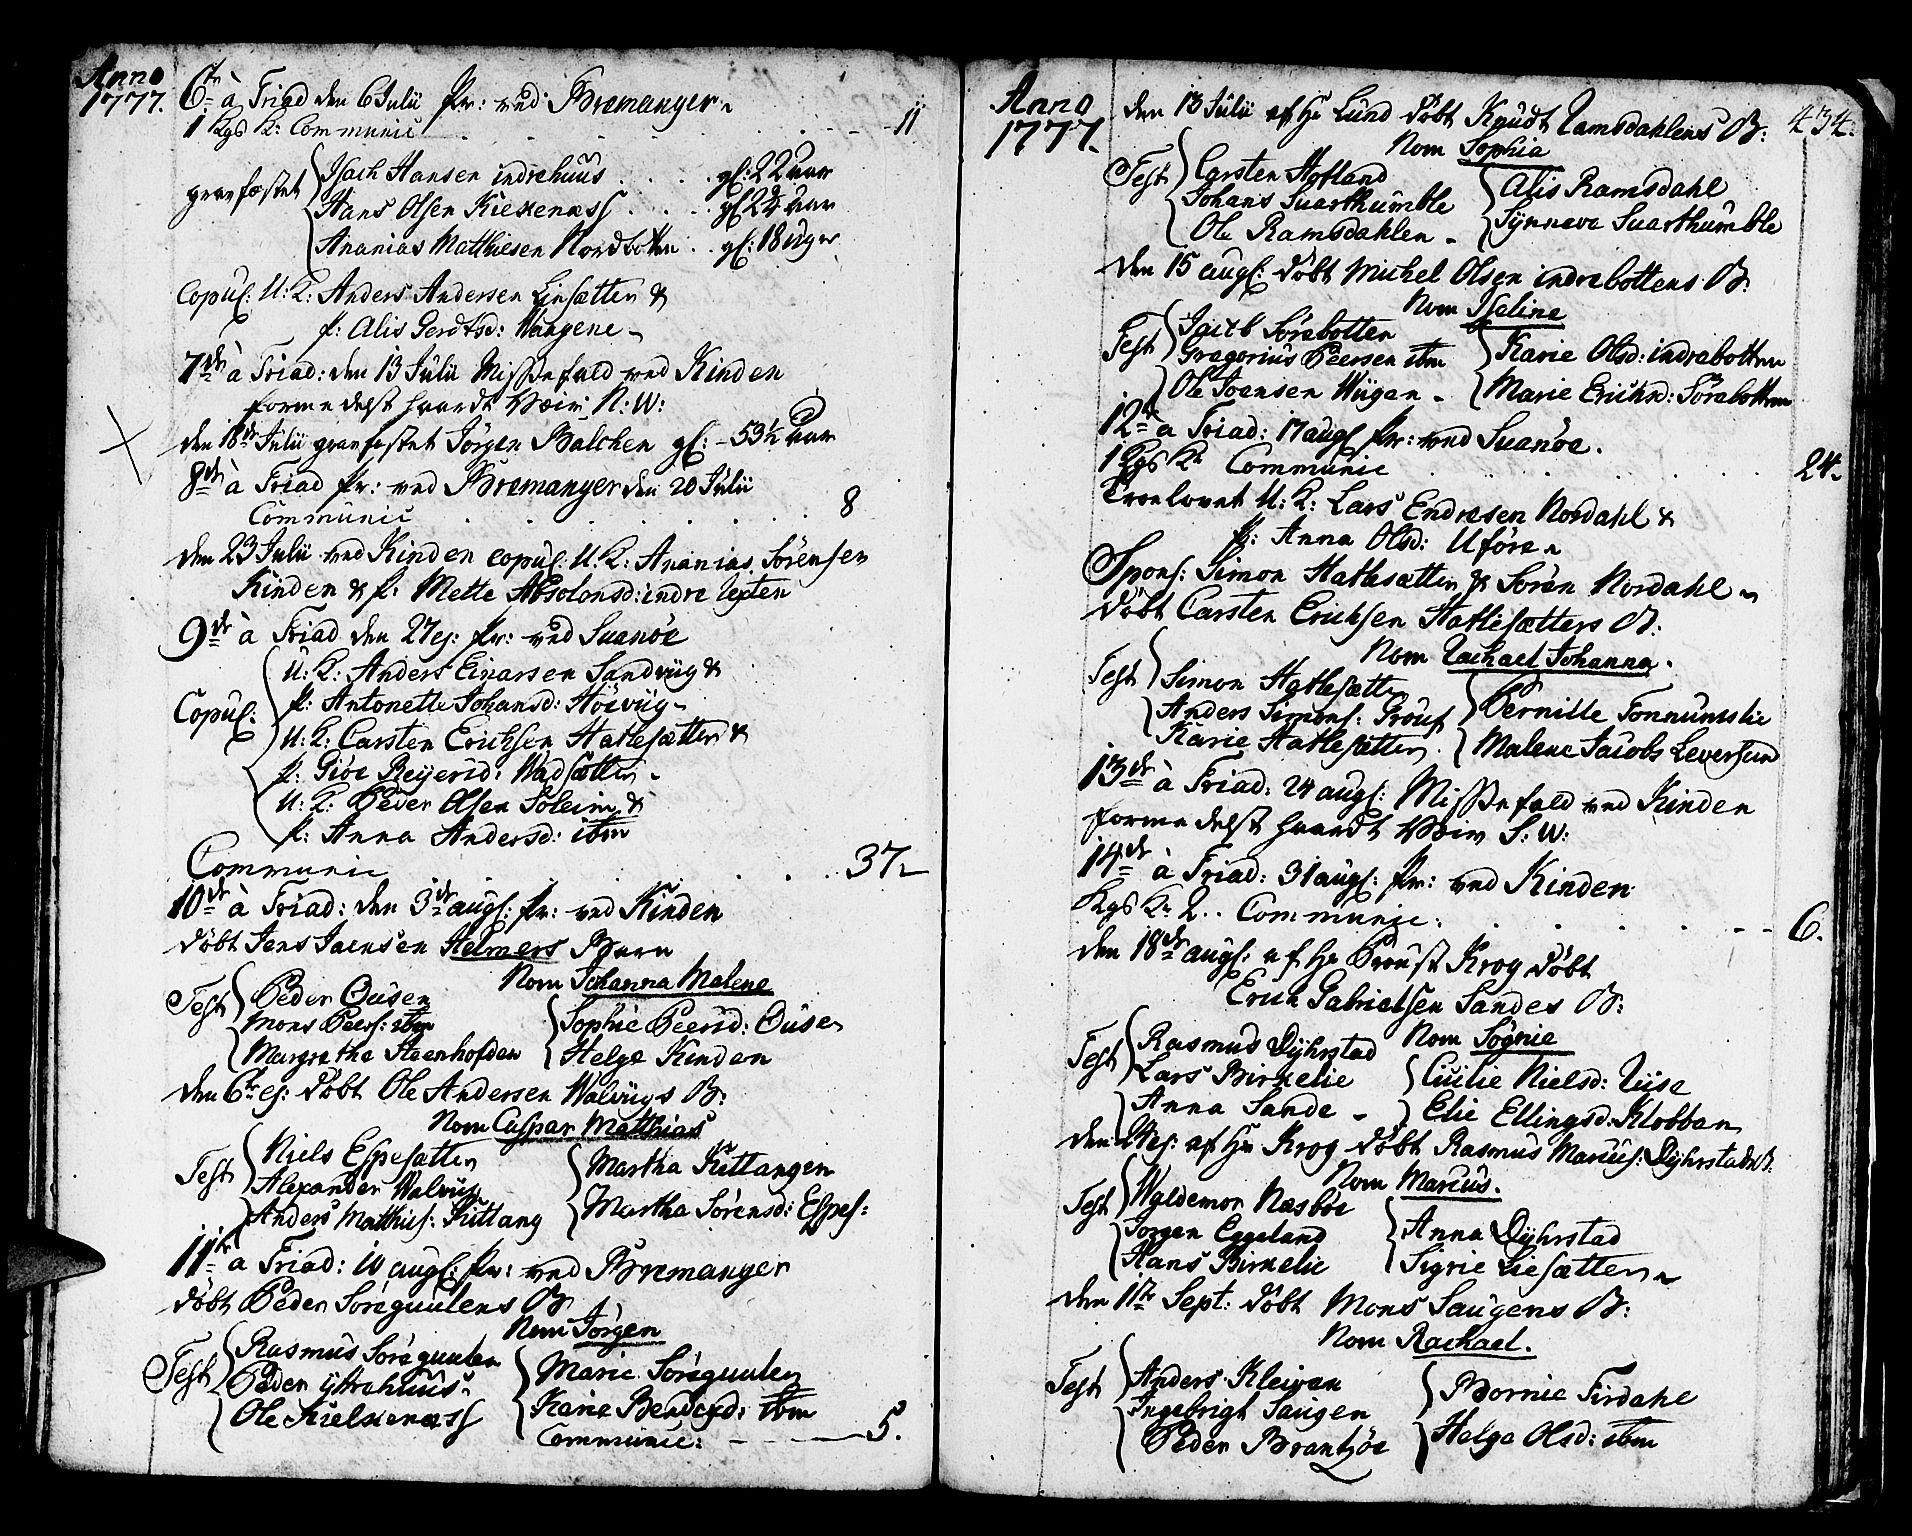 Anno 1777.
6te à Triad den 6 Julii Pr: ved Bremanger
1 Kgs K: Communic . . . . 11
gravfæstet
Isach Hansen indrehuus . . . . gl: 22 aar
Hans Olsen Kiexenæss . . . gl 22 aar
Ananias Matthiesen Nordbotten . . gl: 18 uger
Copul: U: K: Anders Andersen Liesætter &
P: Alis Gerdtsd: Waagene
7de à Triad: den 13 Julii Missefald ved Kinden
formedelst haardt Veir N: W:
den 18de Julii gravfestet Jörgen Balchen gl: 53½ aar
8de à Triad Pr: ved Bremanger den 20 Julii
Communic . . . . . . . 8
den 23 Julii ved Kinden copul: U: K: Ananias Sörensen
Kinden & P: Mette Absolonsd: indre
9de à Triad den 27 ej: Pr: ved Suanöe
Copul:
U: K: Anders Einarsen Sandviig &
P: Antonette Johansd: Höiviig
U: K: Carsten Erichsen Hatlesætter &
P: Giöe Reijersd: Wadsætter
U: K: Peder Olsen Soleim &
P: Anna Andersd: ibm
Communic . . . . . . 37
10de à Triad: den 3de augl: Pr: ved Kinden
döbt Jens Jaensen Helmers Barn
Nom Johanna Malene
Test
Peder Ousen
Mons Peers: ibm
Margrethe Steenhofden
Sophie Peersd: Ouse
Helge Kinden
den 6te ej: döbt Ole Andersen Walvugs B:
Nom Caspar Matthias
Test
Niels Espesætter
Alexander Walvug
Anders Matthies: Kittang
Martha Kittangen
Martha Sörensd: Espes:
11te à Triad: 10 augl: Pr: ved Bremanger
döbt Peder Söreguulens B
Nom Jörgen
Test
Rasmus Söreguulen
Peder ÿttrehuus
Ole Kielkenæss
Marie Söreguulen
Karie Bendixd: ibm
Communic: 5.
Anno 1777. 434.
den 13 Julii af Hr Lund döbt Knudt Ramsdahlens B:
Nom Sophia
Test
Carsten Hofland
Johans Suarthumble
Ole Ramsdahlen
Alis Ramsdahl
Synneve Suarthumble
den 15 augl: döbt Michel Olsen indrebottens B:
Nom Iseline
Test
Jacob Sörebotten
Gregorius Peersen ibm
Ole Joensen Wügen
Karie Olsd: indrebotten
Marie Erichsd: Sörebotten
12te à Triad: 17 augl Pr: ved Suanöe.
1 Kgs K: Communic . . . . 24.
Troelovet U: K: Lars Endresen Nordahl &
P: Anna Olsd: Uföre
Spons: Simon Hatlesætter & Soren Nordahl
döbt Carsten Erichsen Hatlesætters B:
Nom Rachael Johanna.
Test
Simon Hatlesætter
Anders Simons: Grouf
Karie Hatlesætter
Pernille Tonnumslie
Malene Jacobs Leversund
13de à Triad: 24 augl: Missefald ved Kinden
formedelst haardt Veir S: W:
14de à Triad: 31 augl: Pr: ved Kinden
Kgs K: 2.. Communic: . . . . 6.
den 18de augl: af Hr Proust Krog döbt
Erich Gabrielsen Sandes B:
Nom Sögnie
Test
Rasmus Dÿhrstad
Lars Birkelie
Anna Sande
Cicilie Nielsd: Riise
Elie Ellingsd: Klobban
den ej: af Hr Krog döbt Rasmus Marcus: Dÿhrstads B.
Nom Marcus.
Test
Wyldemor Næsböe
Jorgen Eggeland
Hans Birkelie
Anna Dÿhrstad
Sigrie Liesætter
den 11te Sept: döbt Mons Saugens B:
Nom Rachael.
Test
Anders Kleiven
Ingebrigt Saugen
Peder Brantzöe
Bornie Firdahl
Helge Olsd: ibm